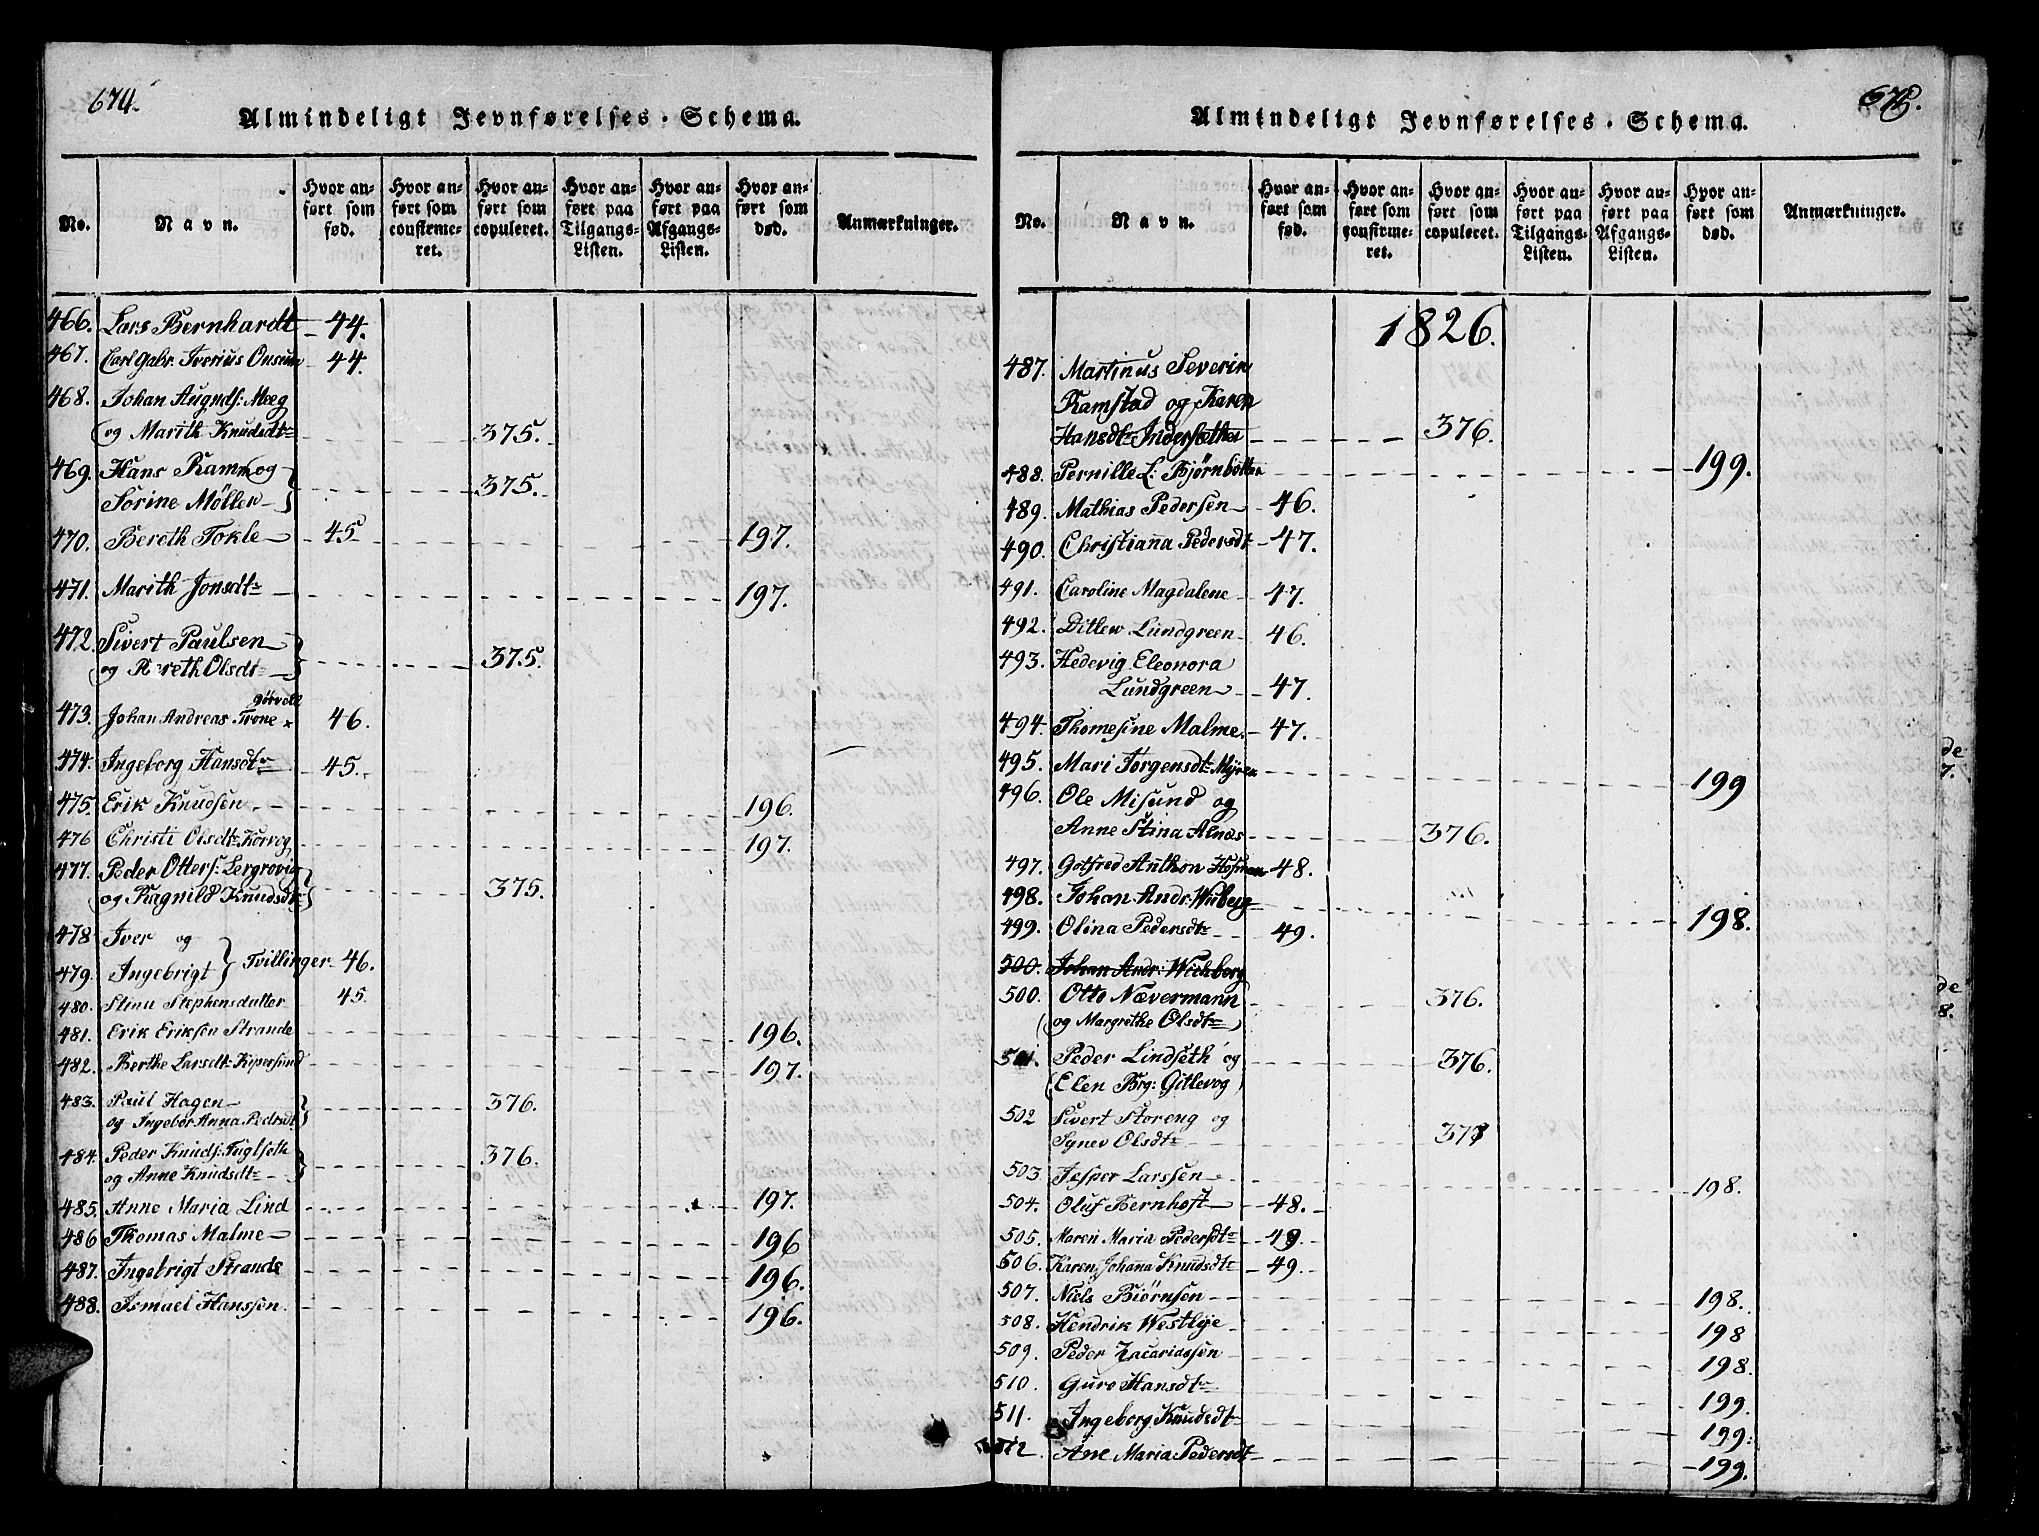 674.
Almindeligt Jevnførelses-Schema.
No.
Navn.
Hvor anført som fød.
Hvor anført som confirmeret.
Hvor anført som copuleret.
Hvor anført paa Tilgangs-Listen.
Hvor anført paa Afgangs-Listen.
Hvor anført som død.
Anmærkninger.
466. Lars Bernhardt 44.
467. Carl Gabr. Iverius Onsum 44.
468. Johan Augnds: Meeg
og Marith Knudsdtr 375.
469. Hans Ramm og 375.
Sorine Møller
470. Bereth Tokle 45 197.
471. Marith Jonsdtr 197.
472. Sivert Paulsen
og Bereth Olsdtr 375.
473. Johan Andreas Trone 46.
474. Ingeborg Hansdtr 45.
475. Erik Knudsen 196.
476 Christi Olsdtr Korvog 197.
477. Peder Otters: Lergrovig
og Ragnild Knudsdtr 375.
478 Iver og
479. Ingebrigt } Tvillinger 46.
480. Stina Stephensdatter 45.
481. Erik Eriksen Strande 196.
482. Berthe Larsdtr 197.
483. Paul Hagen 376.
og Ingebor Anna Pedrsdt
484. Peder Knuds: Fuglseth 376.
og Anne Knudsdtr
485. Anne Maria Lind 197.
486 Thomas Malme 196
487. Ingebrigt Strande 196.
488. Ismael Hanssen. 196.
675.
Almindeligt Jevnførelses-Schema.
No.
Navn.
Hvor anført som fød.
Hvor anført som confirmeret.
Hvor anført som copuleret.
Hvor anført paa Tilgangs-Listen.
Hvor anført paa Afgangs-Listen.
Hvor anført som død.
Anmærkninger.
1826.
487. Martinus Severin
Ramstad og Karen
Hansdtr Indersæther 376.
488. Pernille L: Bjørnbotten 199.
489. Mathias Pedersen 46.
490. Christiana Pedersdt 47.
491. Caroline Magdalene 47.
492. Ditlew Lundgreen 46.
493. Hedevig Eleonora
Lundgreen 47.
494. Thomesine Malme. 47.
495. Mari Jørgensdtr Myren 199
496. Ole Misund og
Anne Stina Alnæs 376.
497. Gotfred Anthon Hofman 48.
498. Johan Andr: Wiberg 198.
499. Olina Pedersdtr 49.
500. Johan Andr: Wichberg
500. Otto Nævermann 376.
og Margrethe Olsdtr
501. Peder Lindseth og 376.
Elen Brg: Gitlevog
502 Sivert Storeng og
Synev Olsdtr 377
503. Jesper Larssen 198.
504. Oluf Bernhoft 48.
505. Maren Maria Pedersdtr 49.
506. Karen Johana Knudsdtr 49.
507. Niels Biørnsen 198.
508. Hendrik Westlye 198
509. Peder Zacariassen 198.
510. Guro Hansdtr 199.
511. Ingeborg Knudsdtr 199.
512. Ane Maria Pedersdt 199.